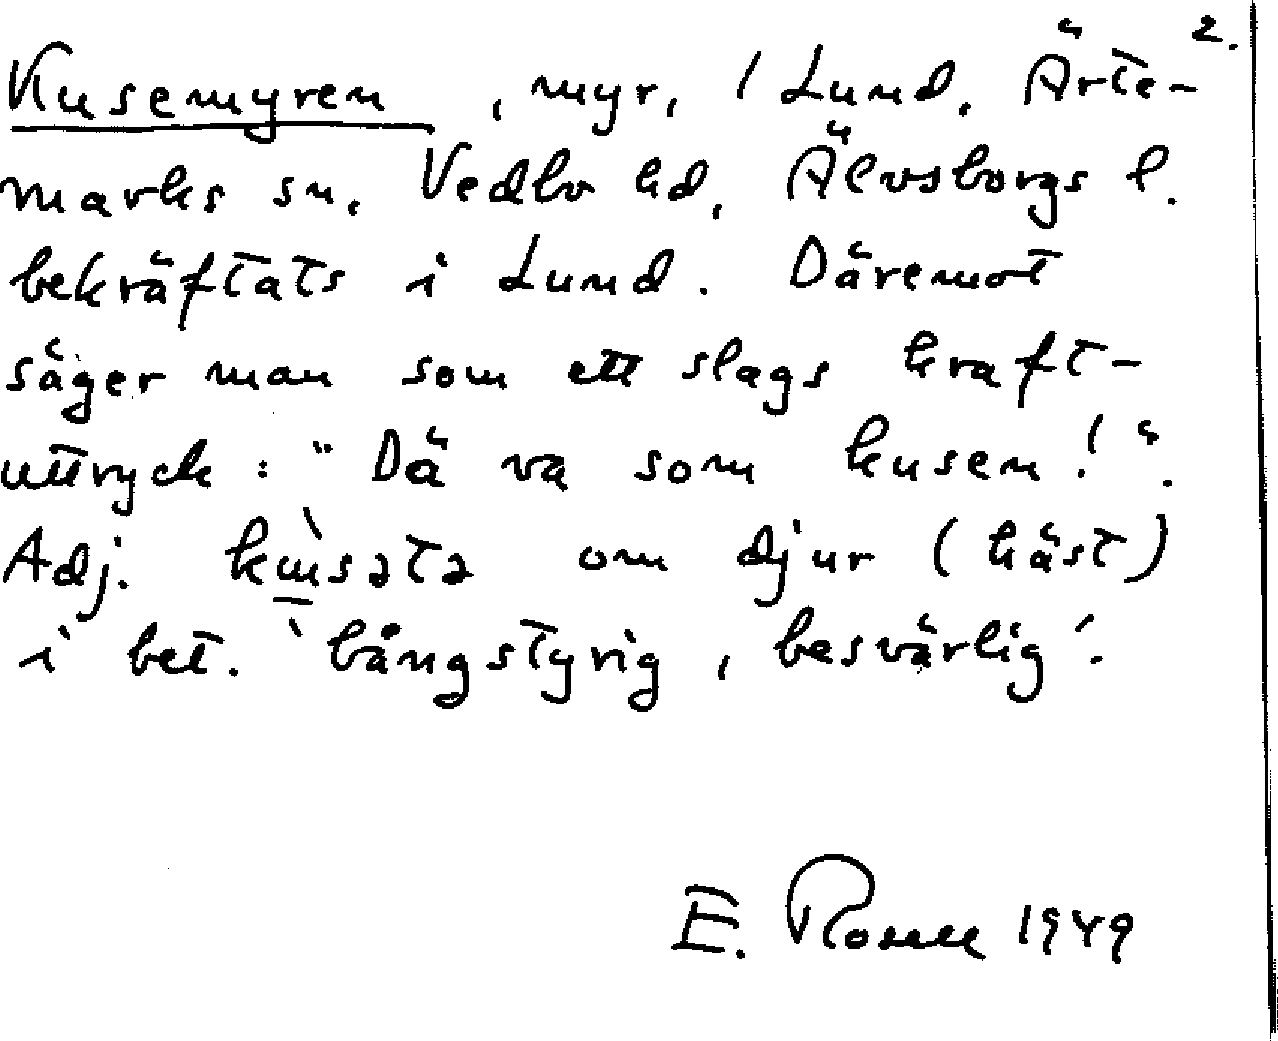 2.
Kusemyren, myr, / Lund, Ärte-
marks sn, Vedbo hd, Älvsborgs l.
bekräftats i Lund. Däremot
säger man som ett slags kraft-
uttryck: "Dä va som kusen!".
Adj. kùsətə om djur (häst)
i bet. `bångstyrig, besvärlig´.
E. 1949